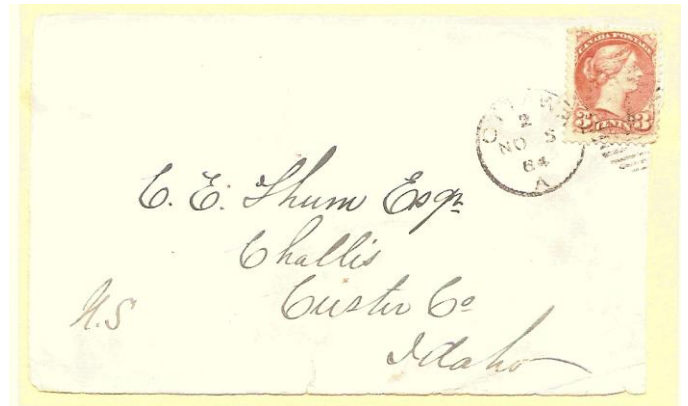 CANADA POSTAGE
3 CENTS 3
OTTAWA
2
NO 5
84
A
C. E. Thum Esqr
Challis
Custer Co
U.S
Idaho